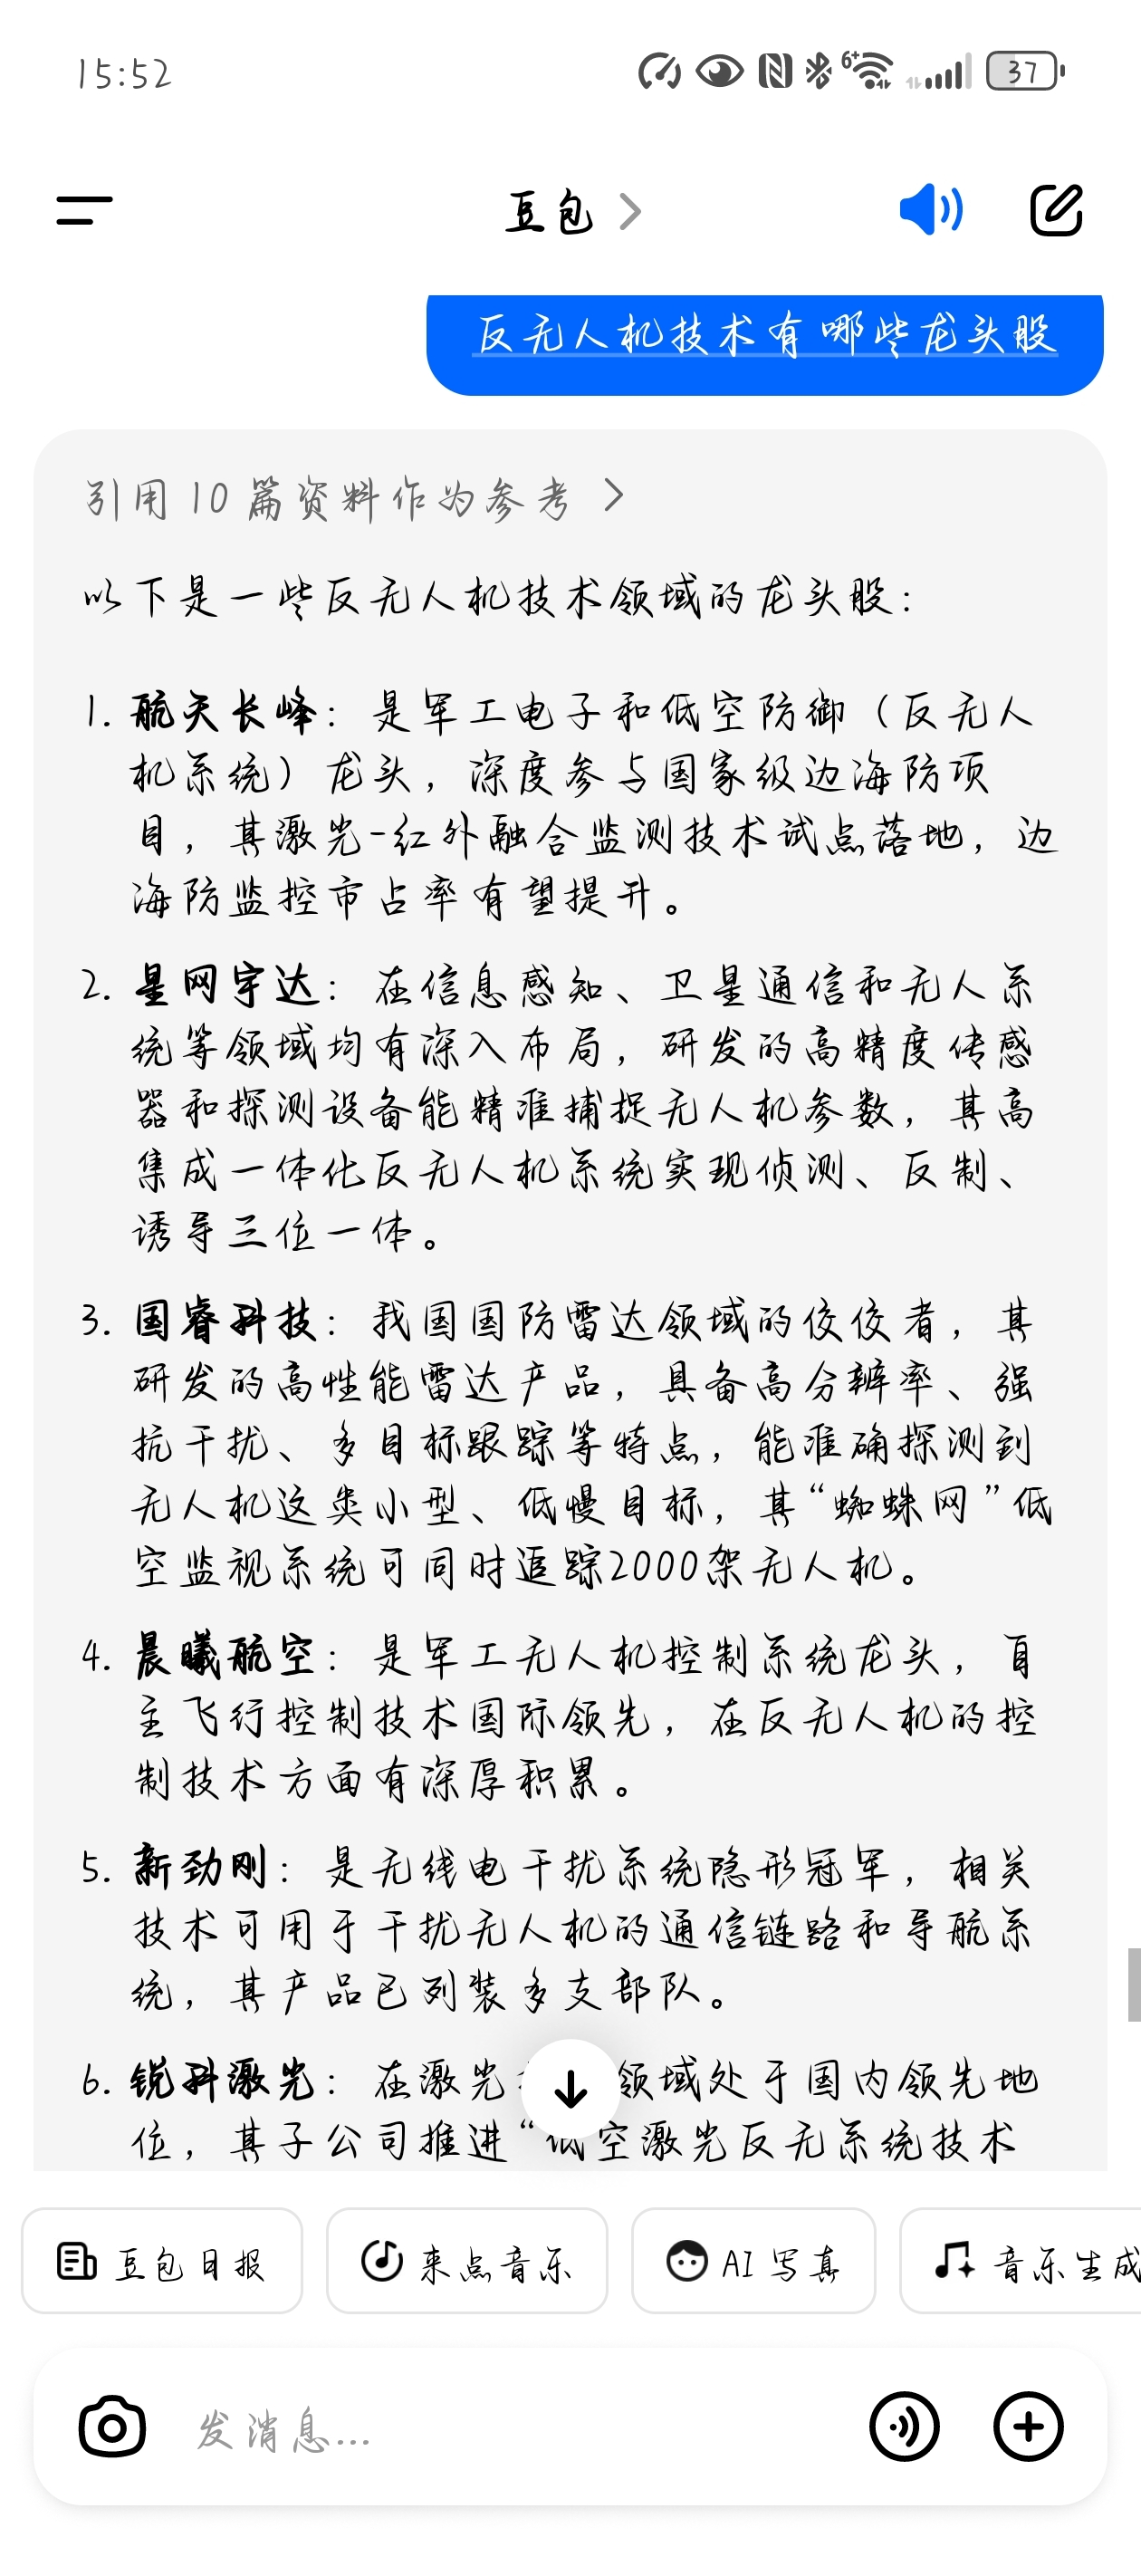 15:52
6+
37
豆包
反无人机技术有哪些龙头股
引用 10 篇资料作为参考
以下是一些反无人机技术领域的龙头股：
1. 航天长峰：是军工电子和低空防御（反无人
机系统）龙头，深度参与国家级边海防项
目，其激光-红外融合监测技术试点落地，边
海防监控市占率有望提升。
2. 星网宇达：在信息感知、卫星通信和无人系
统等领域均有深入布局，研发的高精度传感
器和探测设备能精准捕捉无人机参数，其高
集成一体化反无人机系统实现侦测、反制、
诱导三位一体。
3. 国睿科技：我国国防雷达领域的佼佼者，其
研发的高性能雷达产品，具备高分辨率、强
抗干扰、多目标跟踪等特点，能准确探测到
无人机这类小型、低慢目标，其“蜘蛛网”低
空监视系统可同时追踪2000架无人机。
4. 晨曦航空：是军工无人机控制系统龙头，自
主飞行控制技术国际领先，在反无人机的控
制技术方面有深厚积累。
5. 新劲刚：是无线电干扰系统隐形冠军，相关
技术可用于干扰无人机的通信链路和导航系
统，其产品已列装多支部队。
6. 锐科激光：在激光领域处于国内领先地
位，其子公司推进“低空激光反无系统技术
豆包日报
来点音乐
AI 写真
音乐生成
发消息...